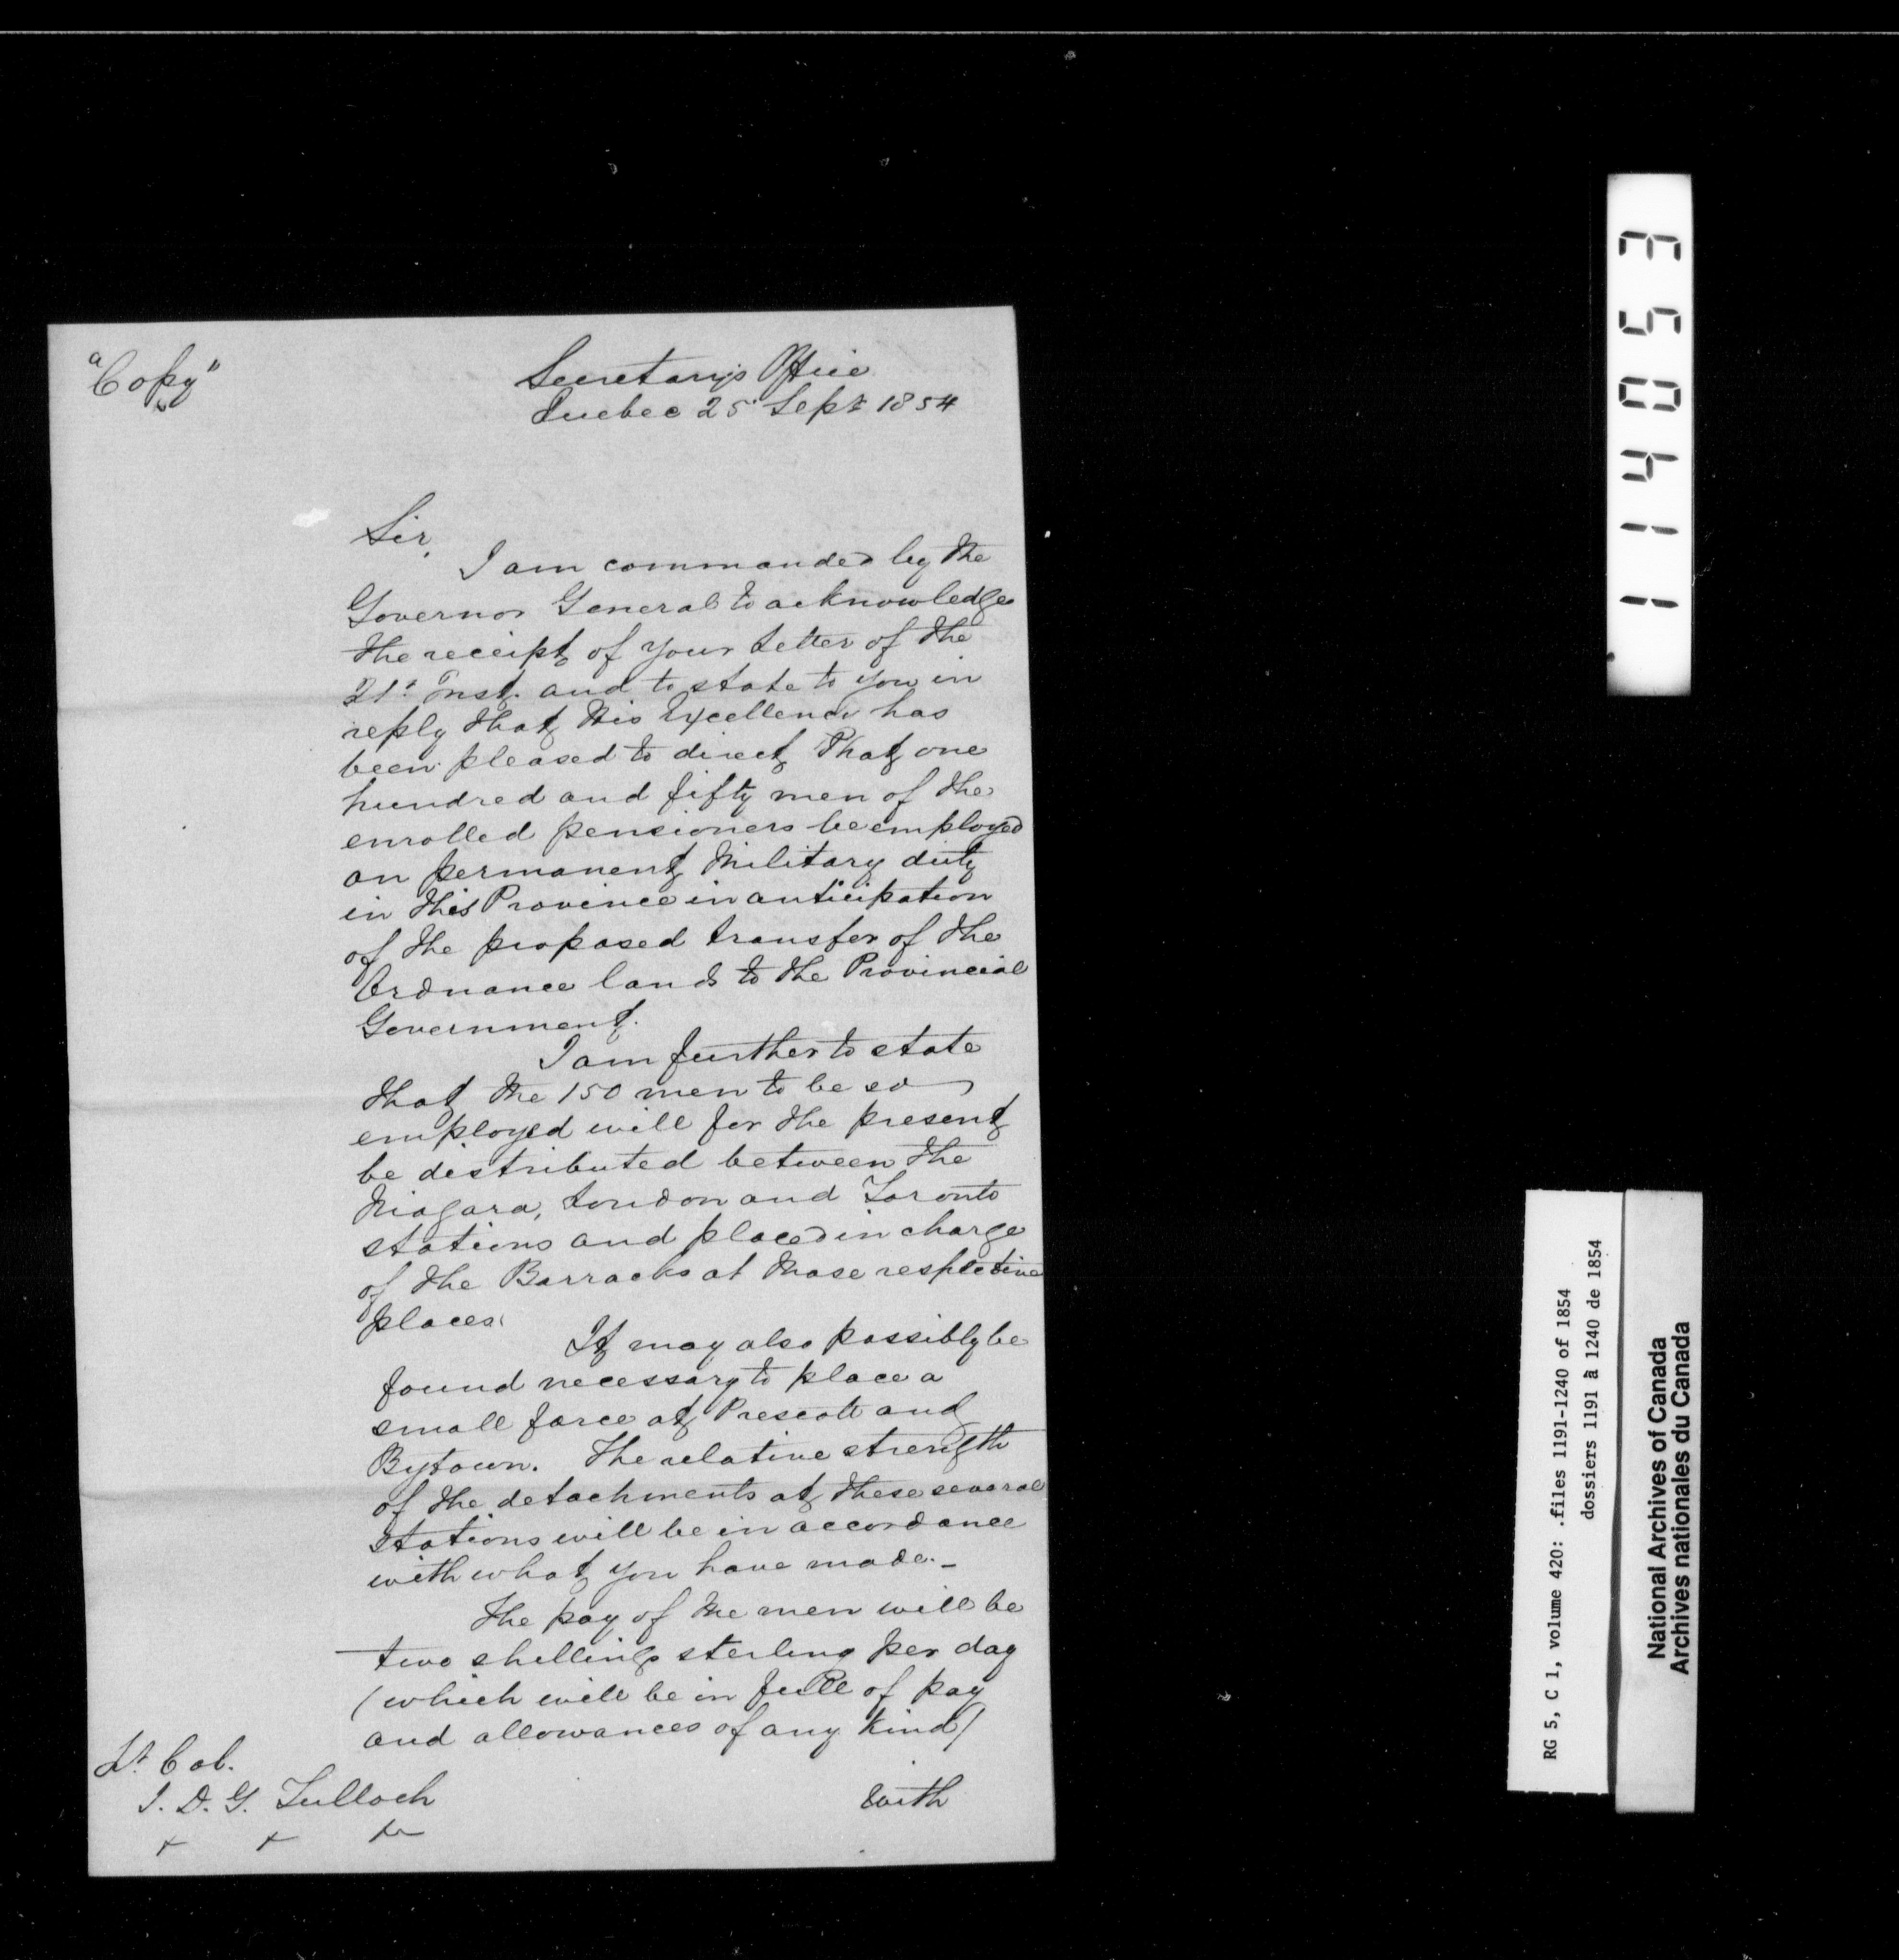 "Copy"
Secretary's Office
Quebec 25 Sept 1854
Sir,
I am commanded by the
Governor General to acknowledge
the receipt of your letter of the
21st Inst. and to state to you in
reply that His Excellency has
been pleased to direct that one
hundred and fifty men of the
enrolled pensioners be employed
on permanent Military duty
in this Province in anticipation
of the proposed transfer of the
Ordnance lands to the Provincial
Government.
I am further to state
that the 150 men to be so
employed will for the present
be distributed between the
Niagara, London and Toronto
stations and placed in charge
of the Barracks at those respective
places.
It may also possibly be
found necessary to place a
small force at Prescott and
Bytown. The relative strength
of the detachments at these several
Stations will be in accordance
with what you have made.-
The pay of the men will be
two shillings sterling per day
(which will be in full of pay
and allowances of any kind)
with
Lt. Col.
I. D. G. Tulloch
+ + +
114053
RG 5, C 1, volume 420: .files 1191-1240 of 1854
dossiers 1191 à 1240 de 1854
National Archives of Canada
Archives nationales du Canada